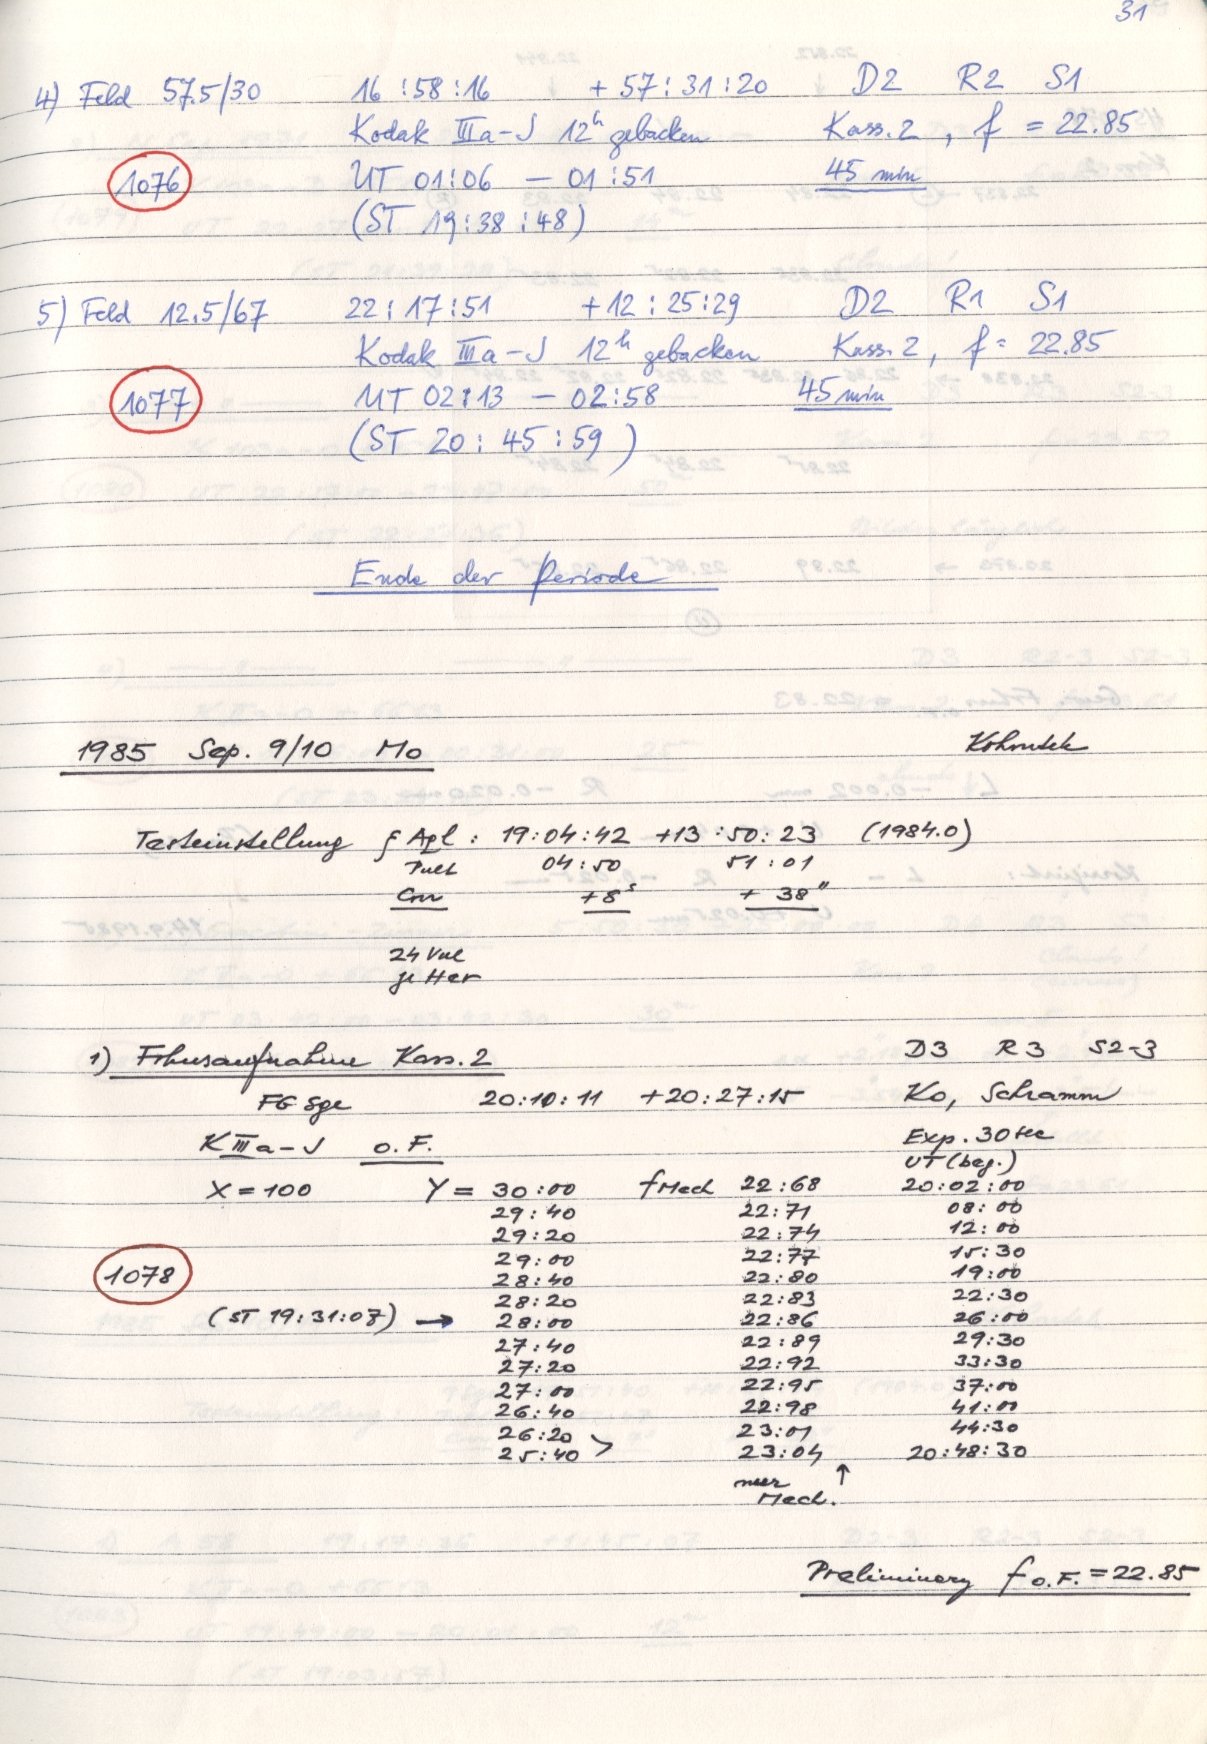 31
4) Feld 57.5/30 16:58:16 +57:31:20 D2 R2 S1
Kodak IIIa-J 12h gebacken Kass. 2, f = 22.85
1076 UT 01:06 – 01:51 45 min
(ST 19:38:48)
5) Feld 12.5/67 22:17:51 +12:25:29 D2 R1 S1
Kodak IIIa-J 12h gebacken Kass. 2, f = 22.85
1077 UT 02:13 – 02:58 45 min
(ST 20:45:59)
Ende der Periode
1985 Sep. 9/10 Mo Kohoutek
Testeinstellung ζ Aql : 19:04:42 +13:50:23 (1984.0)
Pult 04:50 51:01
Corr +8s + 38"
24 Vul
je Her
1) Fokusaufnahme Kass. 2 D3 R3 S2-3
FG Sge 20:10:11 +20:27:15 Ko, Schramm
K IIIa-J o.F. Exp. 30 sec
UT (beg.)
X = 100 Y = 30:00 fMech 22:68 20:02:00
29:40 22:71 08:00
29:20 22:74 12:00
29:00 22:77 15:30
1078 28:40 22:80 19:00
28:20 22:83 22:30
(ST 19:31:07) → 28:00 22:86 26:00
27:40 22:89 29:30
27:20 22:92 33:30
27:00 22:95 37:00
26:40 22:98 41:00
26:20 23:01 44:30
25:40 > 23:04 20:48:30
Mech. ↑
Preliminary f o.F. = 22.85